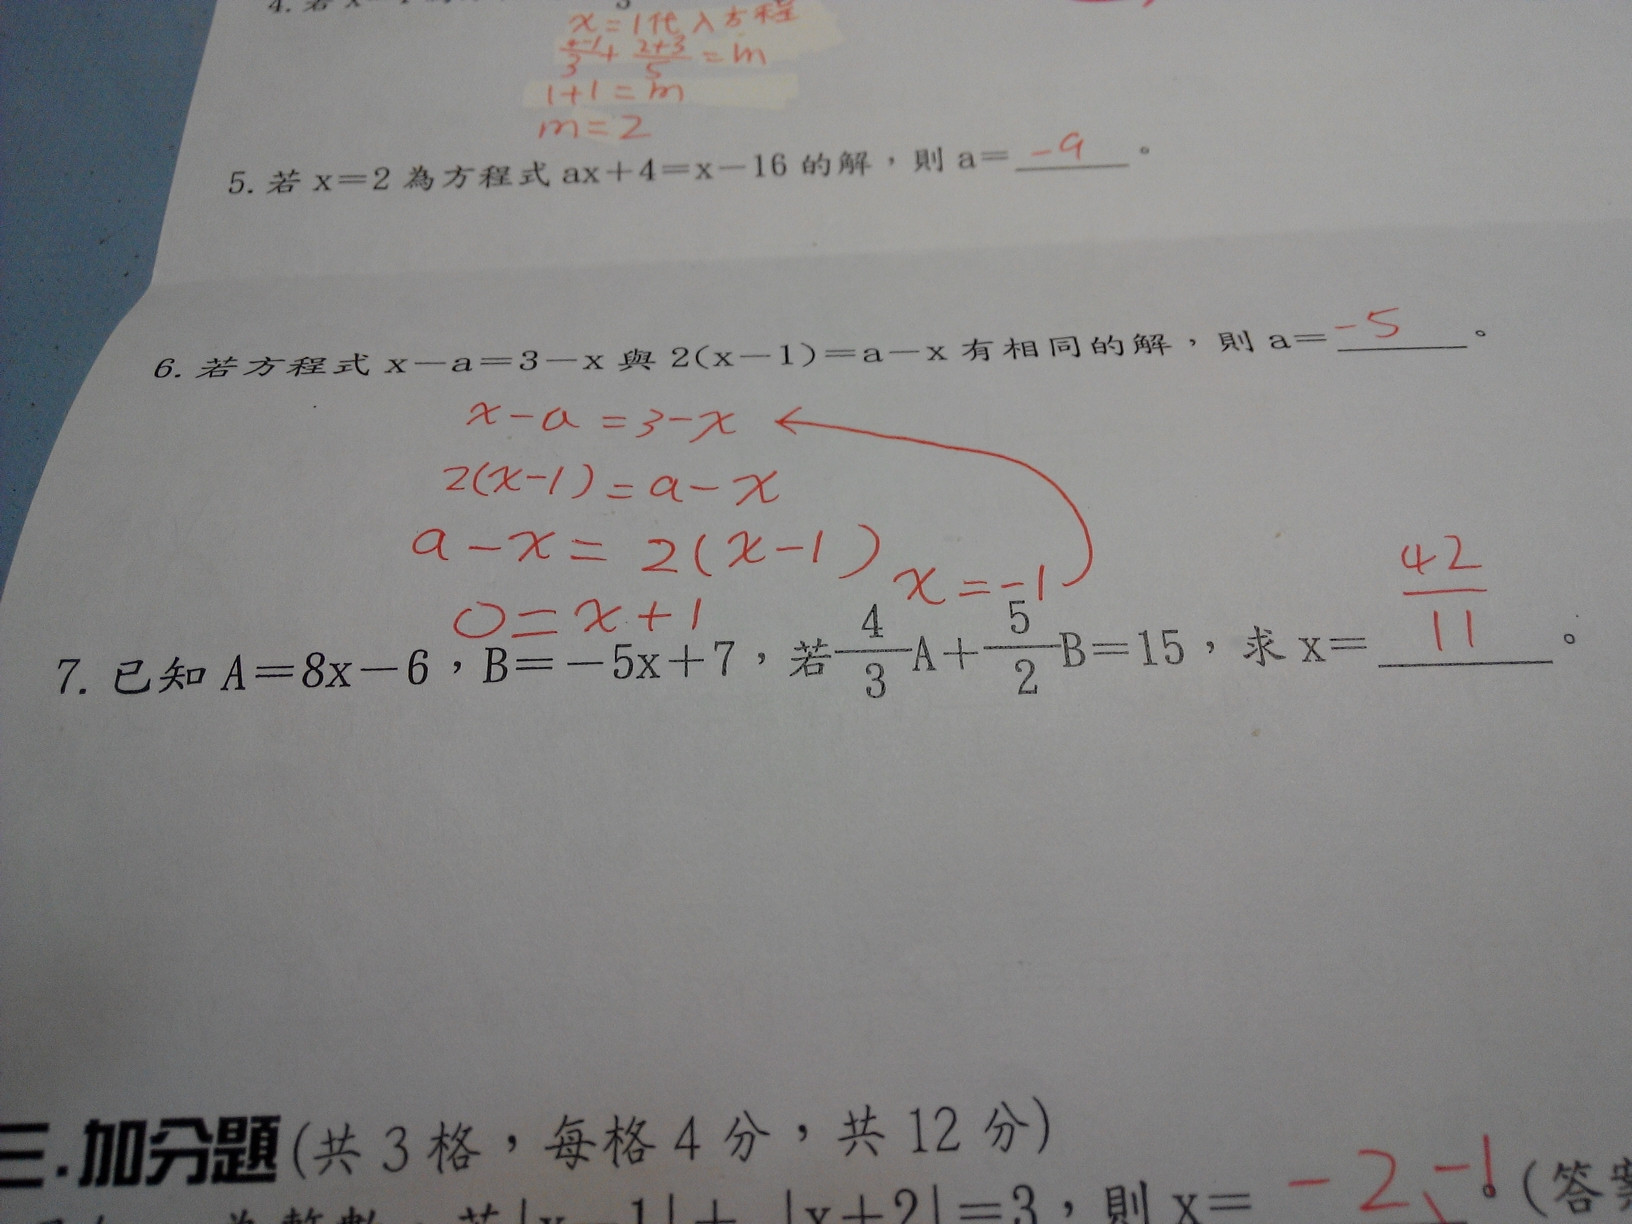 4. 若 x
x=1代入方程
+ \frac{2+3}{5} = m
1+1=m
m=2
5. 若 x=2 為方程式 ax+4=x-16 的解，則 a= -9 。
6. 若方程式 x-a=3-x 與 2(x-1)=a-x 有相同的解，則 a= -5 。
x-a=3-x
2(x-1)=a-x
a-x=2(x-1)
x=-1
0=x+1
7. 已知 A=8x-6，B=-5x+7，若 \frac{4}{3}A+\frac{5}{2}B=15，求 x= \frac{42}{11} 。
三.加分題(共 3 格，每格 4 分，共 12 分)
為整數，若|x-1|+|x+2|=3，則 x= -2、-1。(答案